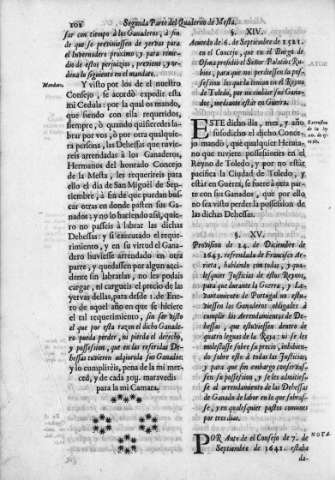 102 Segunda Parte del Quaderno de Mesta.
sar con tiempo à los Ganaderos, à fin
de que se previniessen de yervas para el
Invernadero proximo; y para reme-
dio de estos perjuizios, previene, y or-
dena lo siguiente en el mandato.
Y visto por los de el nuestro
Consejo, se acordò expedir esta
mi Cedula: por la qual os mando,
que siendo con ella requeridos,
siempre, ò quando quisieredes la-
brar por vos, ò por otra qualquie-
ra persona, las Dehessas que tuvie-
reis arrendadas à los Ganaderos,
Hermanos del honrado Concejo
de la Mesta, les requierais para
ello el dia de San Miguèl de Sep-
tiembre, à fin de que puedan bus-
car otras en donde pasten sus Ga-
nados: y no lo haziendo assi, quie-
ro no passeis à labrar las dichas
Dehessas: y si executado el reque-
rimiento, y en su virtud el Ganade-
ro huviesse arrendado en otra
parte, y quedassen por algun acci-
dente sin labrarlas, no les podais
cargar, ni cargueis el precio de las
yervas dellas, para desde 1. de Ene-
ro de aquel año en que se hiciere
el tal requerimiento, sin ser visto
el que por esta razon el dicho Ganade-
ro pueda perder, ni pierda el derecho,
y possession, que en las referidas De-
hessas tuvieren adquirida sus Ganados:
y lo cumplireis, pena de la mi mer-
ced, y de cada 30y. maravedis
para la mi Camara.
§. XIV.
Acuerdo de 6. de Septiembre de 1521.
en el Concejo, que en el Burgo de
Osma presidiò el Señor Palacios Ru-
bios, para que no perdiessen la pos-
session los que la tenian en el Reino
de Toledo, por no entrar sus Gana-
dos, mediante estàr en Guerra.
ESTE dicho dia, mes, y año
susodicho el dicho Conce-
jo mandò, que qualquier Herma-
no que tuviere Possessiones en el
Reyno de Toledo, y por no estàr
pacifica la Ciudad de Toledo, y
estàr en Guerra, se fuere à otra par-
te con sus Ganados, que por ello
no sea visto perder la possession de
las dichas Dehessas.
§. XV.
Provision de 24. de Diciembre de
1643. refrendada de Francisco Ar-
rieta, hablando con todas, y qua-
lesquier Justicias de estos Reynos,
para que durante la Guerra, y Le-
vantamiento de Portugal no estu-
viessen los Ganaderos obligados à
cumplir los Arrendamientos de De-
hessas, que estuviessen dentro de
quatro leguas de la Raya: ni se les
molestasse sobre su precio, inhibien-
do sobre esto à todas las Justicias,
y para que sin embargo conservas-
sen su possession, y se les admities-
se al arrendamiento de las Dehessas
de Ganado de labor en lo que sobras-
se, y en qualesquier pastos comunes
por tres dias.
POR Auto de el Consejo de 7. de
Septiembre de 1641. estaba
NOTA.